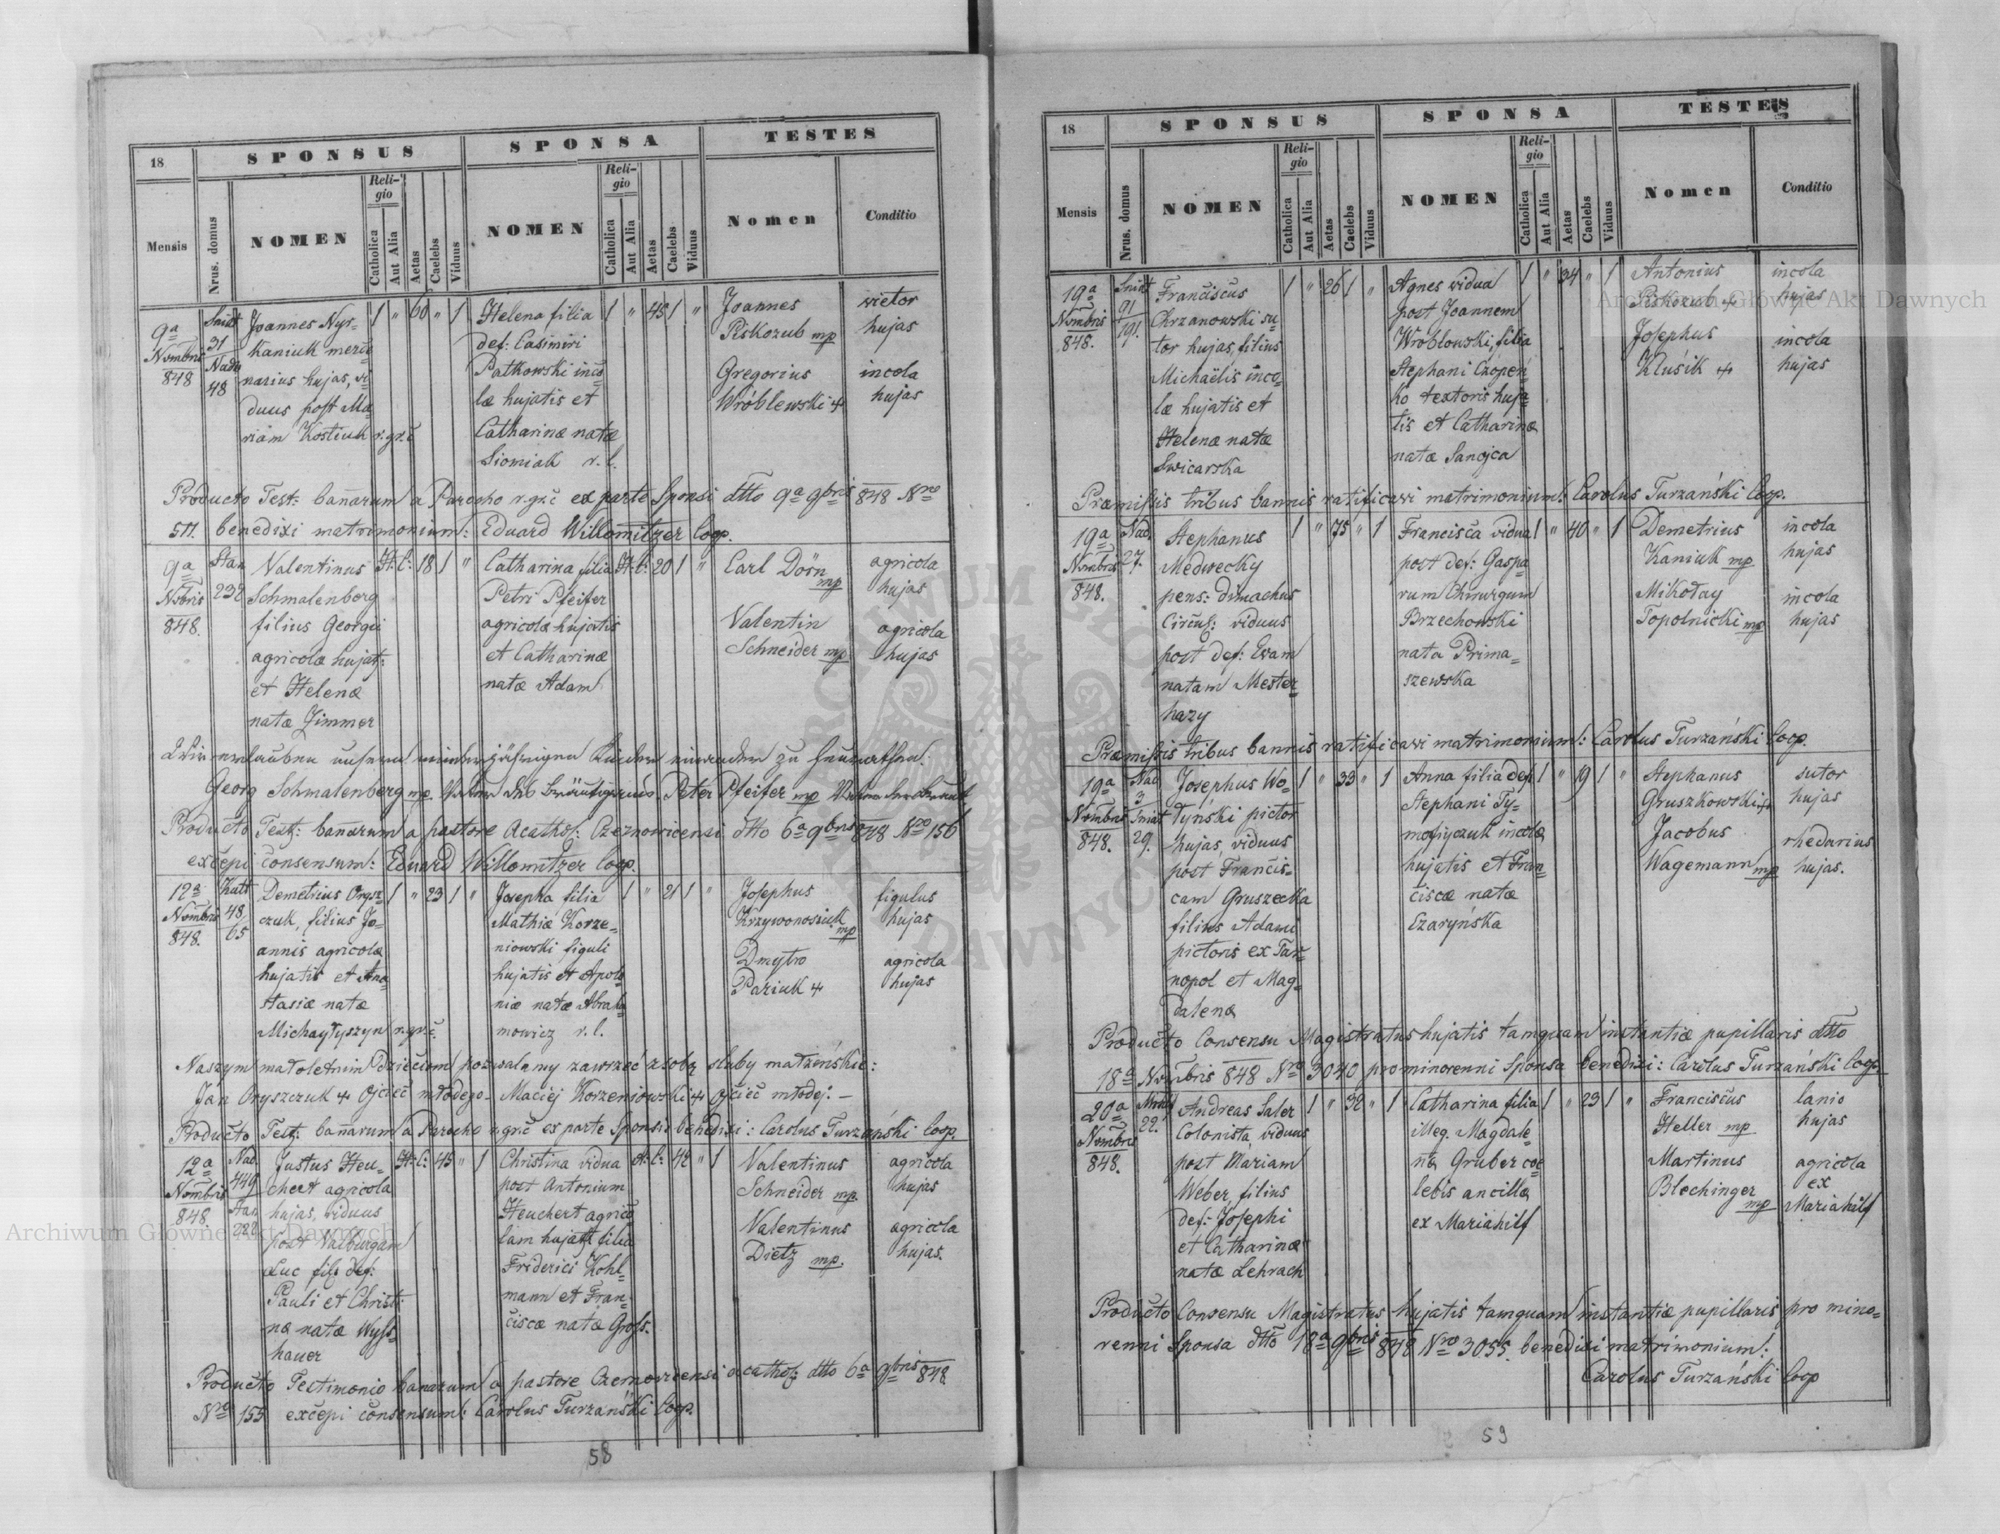 18
SPONSUS
SPONSA
TESTES
Mensis
Nrus. domus
NOMEN
Religio
Catholica
Aut Alia
Aetas
Caelebs
Viduus
NOMEN
Religio
Catholica
Aut Alia
Aetas
Caelebs
Viduus
Nomen
Conditio
9a
Nombris
848
31
48
Joannes Nys-
kaniuk merce
narius hujas, vi-
duus post Ma-
riam Kostiuk r.gr.c
1 " 60 " 1
Helena filia
def: Casimiri
Patkowski inco
læ hujatis et
Catharinæ natæ
Siomiak r.l.
1 " 45 1 "
Joannes
Piskozub mp
Gregorius
Wróblewski +
vietor
hujas
incola
hujas
Producto Test: banarum a Parocho r.gr.c ex parte Sponsi dtto 9a 9bris 848 Nro
511. benedixi matrimonium: Eduard Willomitzer Coop.
9a
Nobris
848.
232
Valentinus
Schmalenberg
filius Georgii
agricolæ hujat:
et Helenæ
natæ Zimmer
H: C: 18 1 "
Catharina filia
Petri Pfeifer
agricolæ hujatis
et Catharinæ
natæ Adam
H: C: 20 1 "
Carl Dörn
mp
Valentin
Schneider mp
agricola
hujas
agricola
hujas
Wir erlauben unsern minderjährigen Kindern einander zu heurathen:
Georg Schmalenberg mp Vater des Bräutigams. Peter Pfeifer mp Vater der Braut
Producto Test: banarum a pastore Acathol: Czernovicensi dtto 6a 9bris 848 Nro 156
excepi consensum: Eduard Willomitzer Coop.
12a
Nombris
848.
48
65
Demetrius Orysz-
czuk, filius Jo-
annis agricolæ
hujatis et Ana-
stasiæ natæ
Michayłyszyn r.gr.c.
1 " 23 1 "
Josepha filia
Mathiæ Korze-
niowski figuli
hujatis et Apolo
niæ natæ Abraha
mowicz r.l.
1 " 21 1 "
Josephus
Krzywonosiuk
mp
Dmytro
Pariuk +
figulus
hujas
agricola
hujas
Naszym małoletnim Dzieciom pozwalamy zawrzeć z sobą śluby małżeńskie:
Jan Oryszczuk + Ojciec młodego- Maciej Korzeniowski + Ojciec młodej: -
Producto Test: banarum a Parocho r.gr.c ex parte Sponsi benedixi: Carolus Turzański Coop.
12a
Nombris
848.
Nad.
449
Stan.
222
Justus Heu-
chert agricola
hujas, viduus
post Valburgam
Luc fil: def:
Pauli et Christi
næ natæ Wyss-
hauer
H: C: 45 " 1
Christina vidua
post Antonium
Heuchert agrico
lam hujat: filia
Friderici Kohl-
mann et Fran-
ciscæ natæ Gross.
H: C: 42 " 1
Valentinus
Schneider mp
Valentinus
Dietz mp.
agricola
hujas
agricola
hujas.
Producto Testimonio banarum a pastore Czernovicensi acathol: dtto 6a 9bris 848.
Nro 155 excepi consensum: Carolus Turzański Coop.
58
18
SPONSUS
SPONSA
TESTES
Mensis
Nrus. domus
NOMEN
Religio
Catholica
Aut Alia
Aetas
Caelebs
Viduus
NOMEN
Religio
Catholica
Aut Alia
Aetas
Caelebs
Viduus
Nomen
Conditio
19a
Nombris
848.
91
191.
Franciscus
Chrzanowski su-
tor hujas, filius
Michaëlis inco-
læ hujatis et
Helenæ natæ
Swicarska
1 " 26 1 "
Agnes vidua
post Joannem
Wroblowski, filia
Stephani Czopen-
ko textoris huja-
tis et Catharinæ
natæ Sanojca
1 " 34 " 1
Antonius
Piskozub +
Josephus
Kłusik +
incola
hujas
incola
hujas
Præmissis tribus bannis ratificavi matrimonium: Carolus Turzański Coop.
19a
Nombris
848.
Nad.
27.
Stephanus
Medwecky
pens: dimachus
Circul: viduus
post def: Evam
natam Mester-
hazy
1 " 75 " 1
Francisca vidua
post def: Gaspa-
rum Chirurgum
Brzechowski
nata Prima-
szewska
1 " 40 " 1
Demetrius
Kaniuk mp
Mikołay
Topolnicki mp
incola
hujas
incola
hujas
Præmissis tribus bannis ratificavi matrimonium: Carolus Turzański Coop.
19a
Nombris
848.
Nad.
3
29.
Josephus Wo-
tyński pictor
hujas, viduus
post Francis-
cam Gruszecka
filius Adami
pictoris ex Tar-
nopol et Mag-
dalenæ
1 " 33 " 1
Anna filia def
Stephani Ty-
mofijczuk incolæ
hujatis et Fran-
ciscæ natæ
Czaryńska
1 " 19 1 "
Stephanus
Gruszkowski +
Jacobus
Wagemann mp
sutor
hujas
rhedarius
hujas.
Producto Consensu Magistratus hujatis tamquam instantiæ pupillaris dtto
18a Nombris 848 Nro 3040 pro minorenni Sponsa benedixi: Carolus Turzański Coop.
20a
Nombris
848.
22.
Andreas Saler
Colonista, viduus
post Mariam
Weber, filius
def: Josephi
et Catharinæ
natæ Lehrach
1 " 32 " 1
Catharina filia
illeg. Magdale-
næ Gruber cœ-
lebis ancillæ
ex Mariahilf
1 " 23 1 "
Franciscus
Heller mp
Martinus
Blechinger
mp
lanio
hujas
agricola
ex
Mariahilf
Producto Consensu Magistratus hujatis tamquam instantiæ pupillaris pro mino-
renni Sponsa dtto 18a 9bris 848 Nro 3055. benedixi matrimonium:
Carolus Turzański Coop
59
Archiwum Główne Akt Dawnych
Archiwum Główne Akt Dawnych
ARCHIWUM GŁÓWNE AKT DAWNYCH